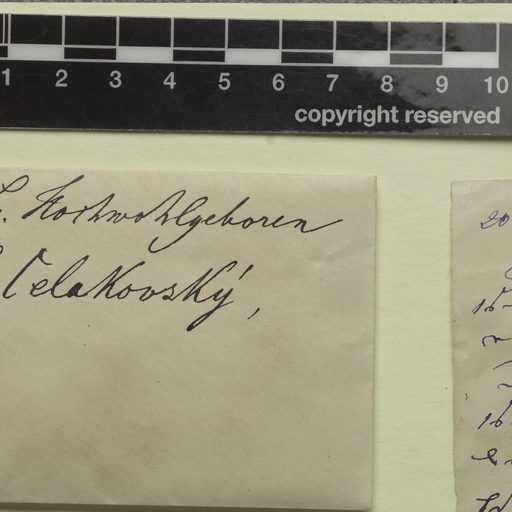 1 2 3 4 5 6 7 8 9 10
copyright reserved
S. Hochwohlgeboren
Čelakovský,
20